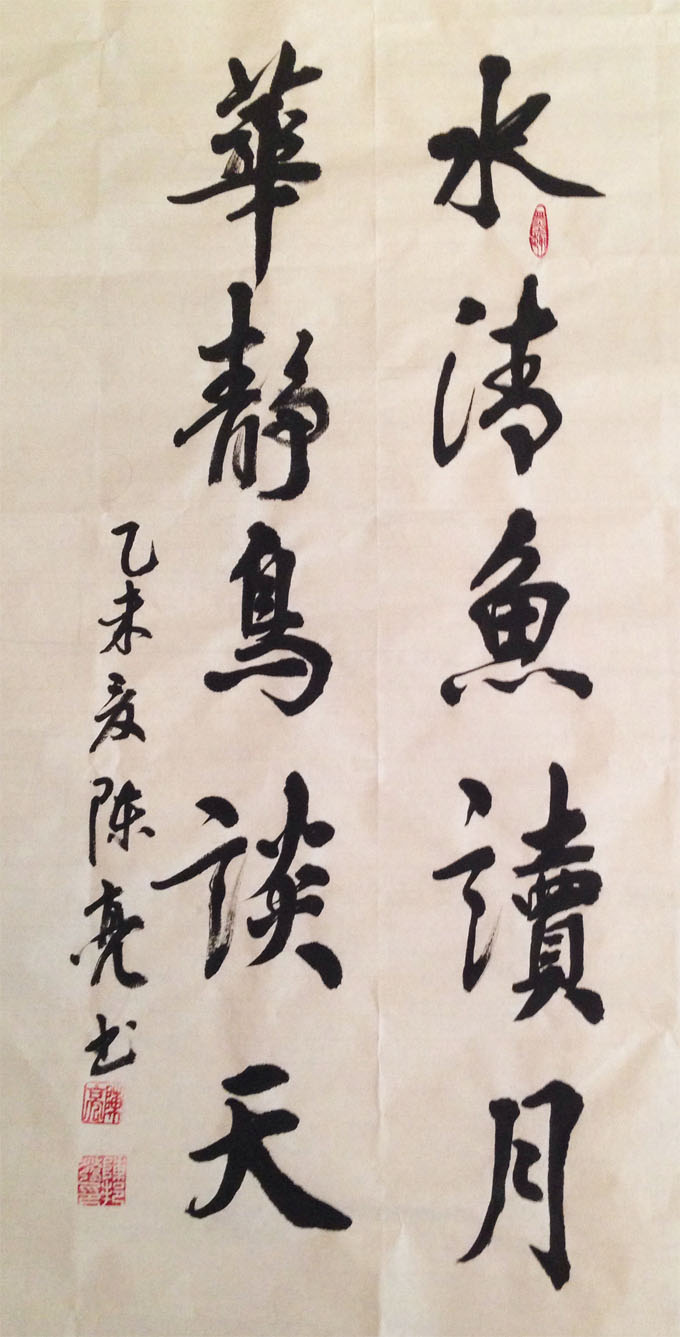 水清魚讀月
華靜鳥談天
乙未夏陈亮书